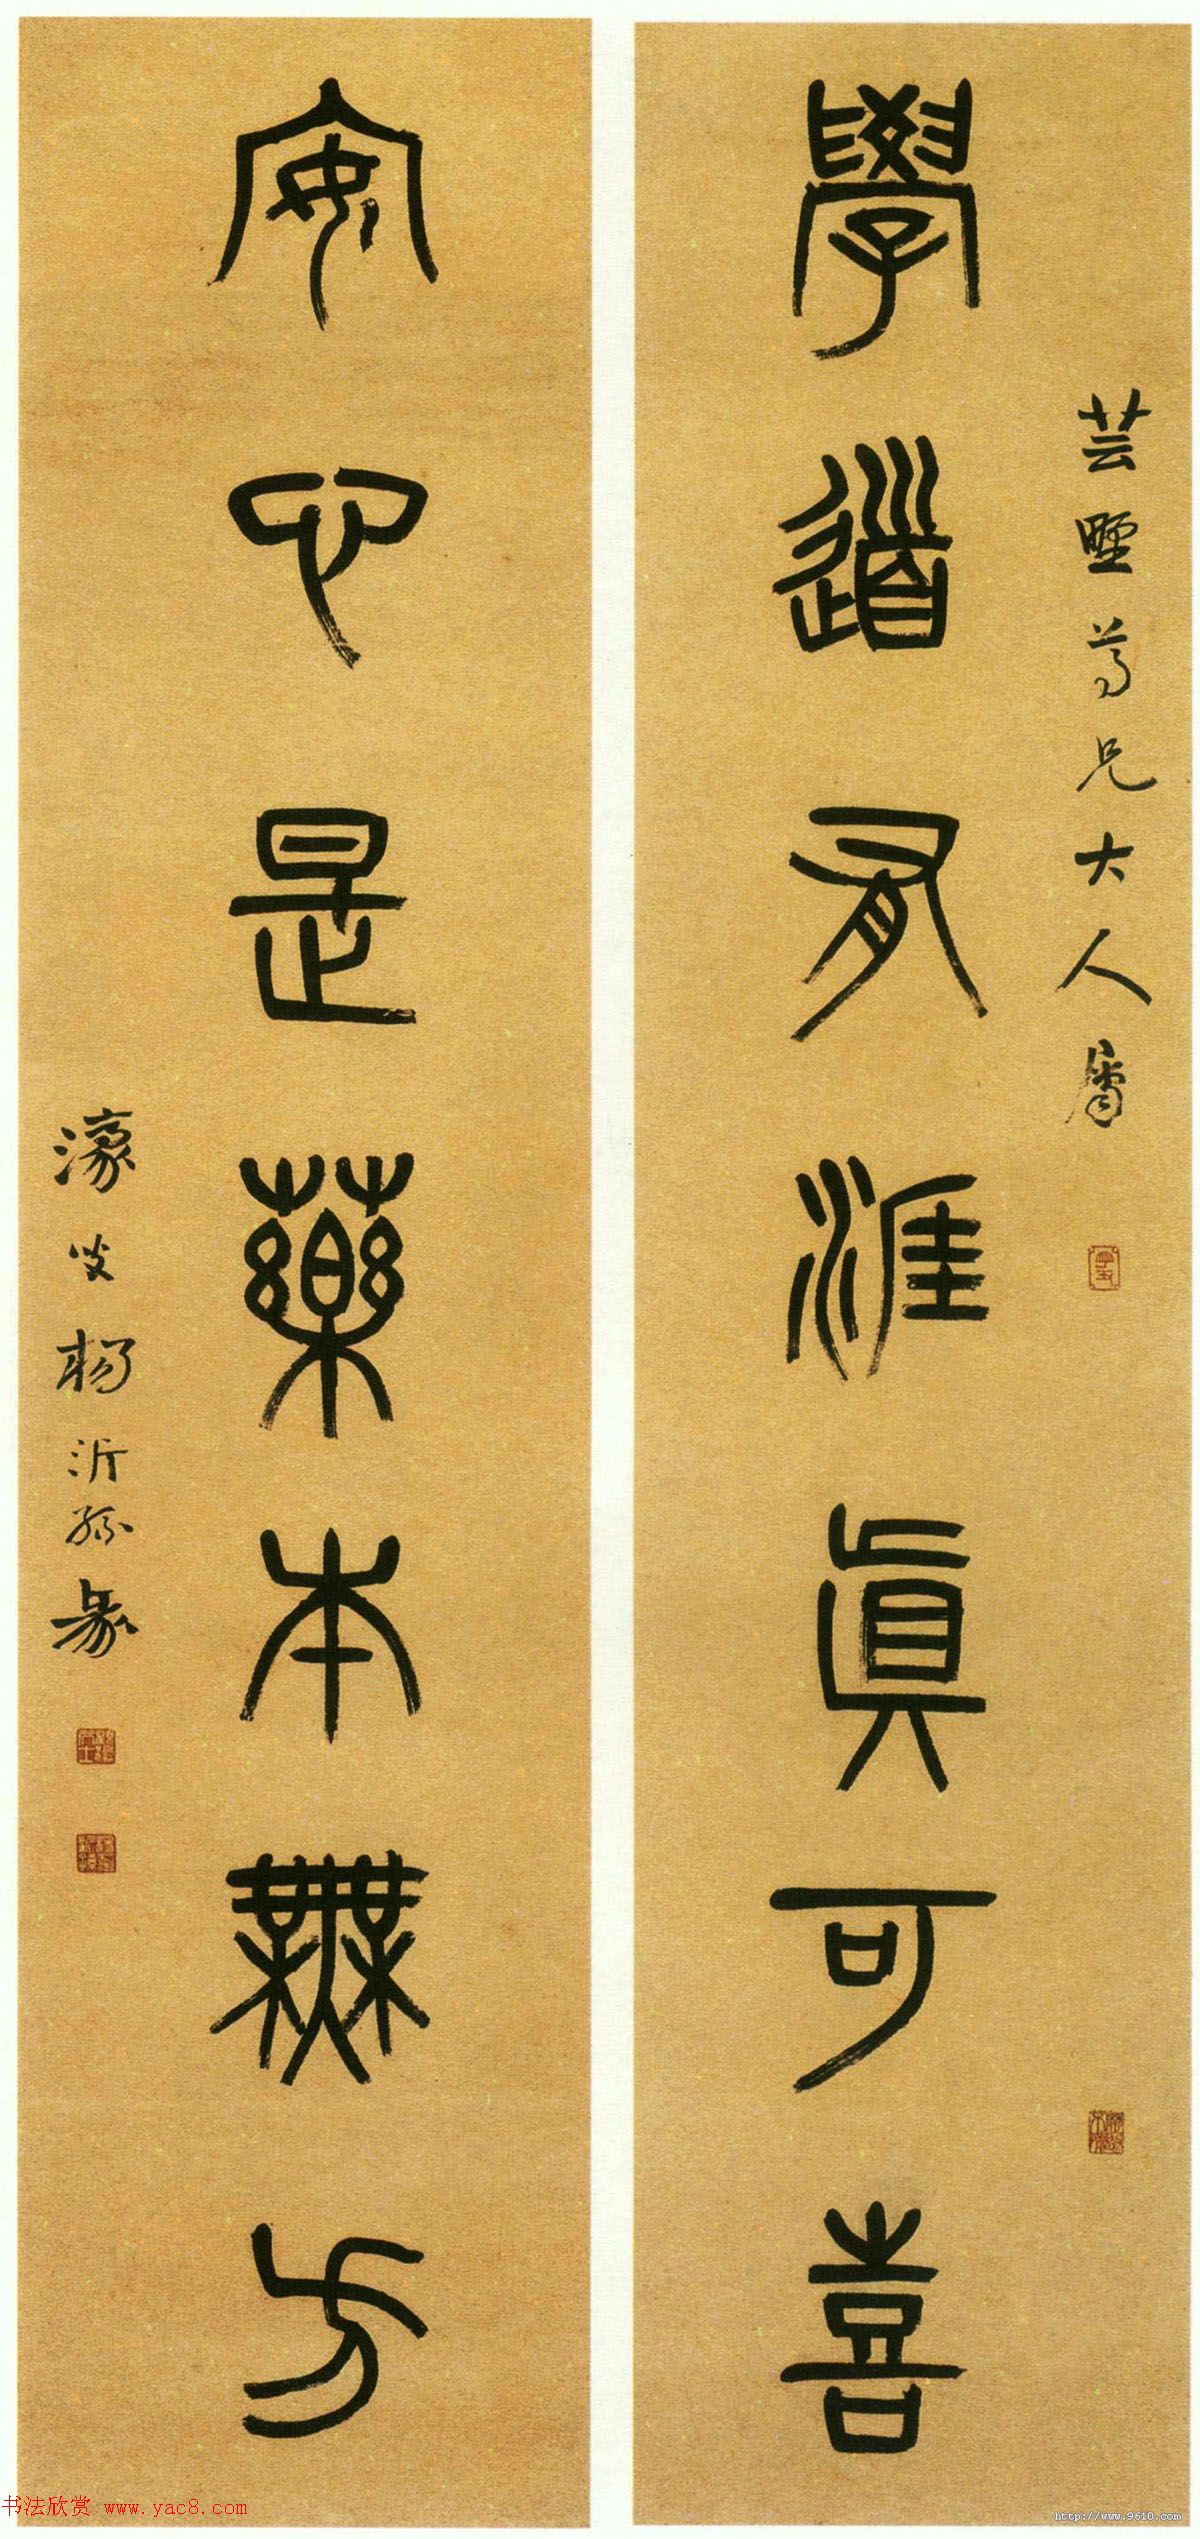 學道有涯眞可喜
芸墅尊兄大人屬
安心是藥本無方
濠叟楊沂孫篆
书法欣赏 www.yac8.com
http://www.9610.com